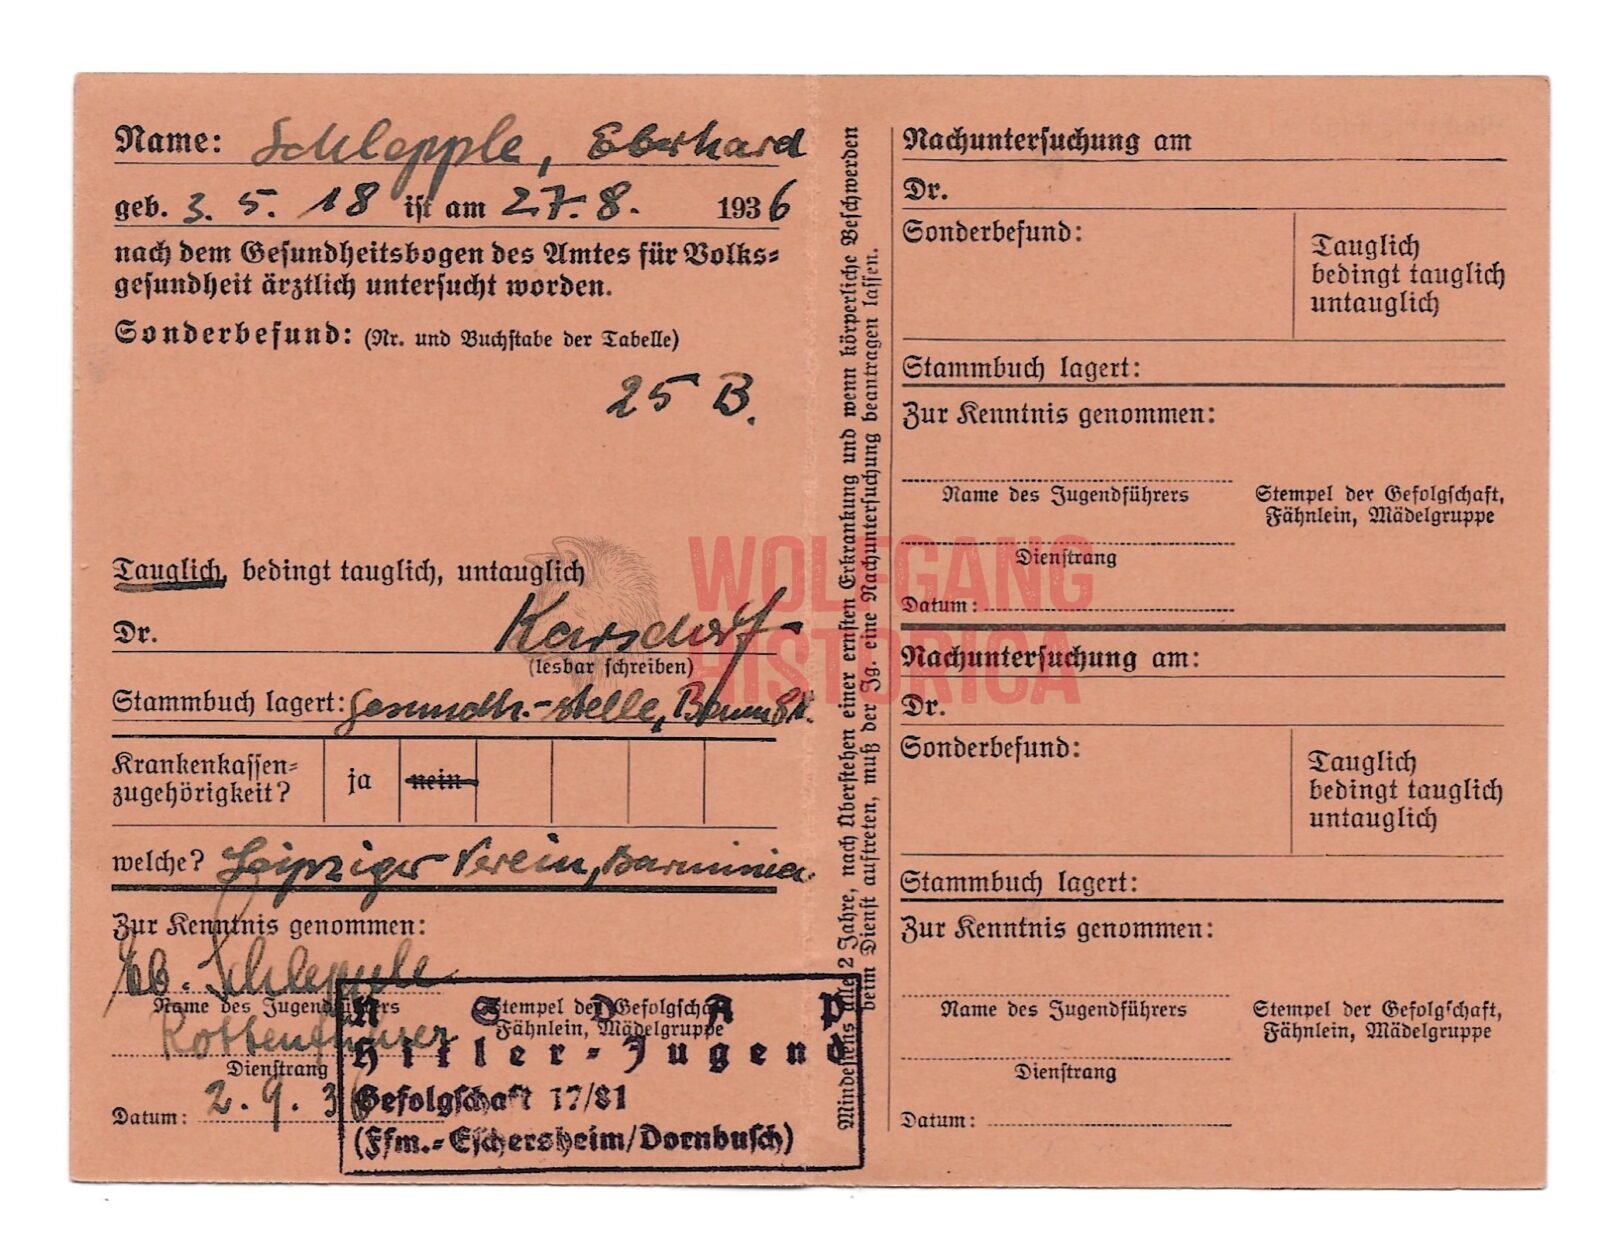 Name: Schlepple, Eberhard
geb. 3. 5. 18 ist am 27. 8. 1936
nach dem Gesundheitsbogen des Amtes für Volks=
gesundheit ärztlich untersucht worden.
Sonderbefund: (Nr. und Buchstabe der Tabelle)
25 B.
Tauglich, bedingt tauglich, untauglich
Dr. Karsdorf
(lesbar schreiben)
Stammbuch lagert: Gesundh.-stelle,
Krankenkassen=
zugehörigkeit? ja nein
welche? Leipziger Verein, Barmenia.
Zur Kenntnis genommen:
Eb. Schlepple
Name des Jugendführers
Stempel der Gefolgschaft,
Fähnlein, Mädelgruppe
Rottenführer
Dienstrang
Datum: 2. 9. 36
N S D A P
Hitler=Jugend
Gefolgschaft 17/81
(Ffm.=Eschersheim/Dornbusch)
Mindestens alle 2 Jahre, nach Überstehen einer ernsten Erkrankung und wenn körperliche Beschwerden
beim Dienst auftreten, muß der Jg. eine Nachuntersuchung beantragen lassen.
Nachuntersuchung am
Dr.
Sonderbefund:
Tauglich
bedingt tauglich
untauglich
Stammbuch lagert:
Zur Kenntnis genommen:
Name des Jugendführers
Stempel der Gefolgschaft,
Fähnlein, Mädelgruppe
Dienstrang
Datum:
Nachuntersuchung am:
Dr.
Sonderbefund:
Tauglich
bedingt tauglich
untauglich
Stammbuch lagert:
Zur Kenntnis genommen:
Name des Jugendführers
Stempel der Gefolgschaft,
Fähnlein, Mädelgruppe
Dienstrang
Datum:
WOLFGANG
HISTORICA